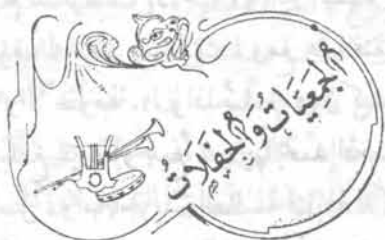 الجمعيَاتُ وَالحَفلَاتُ